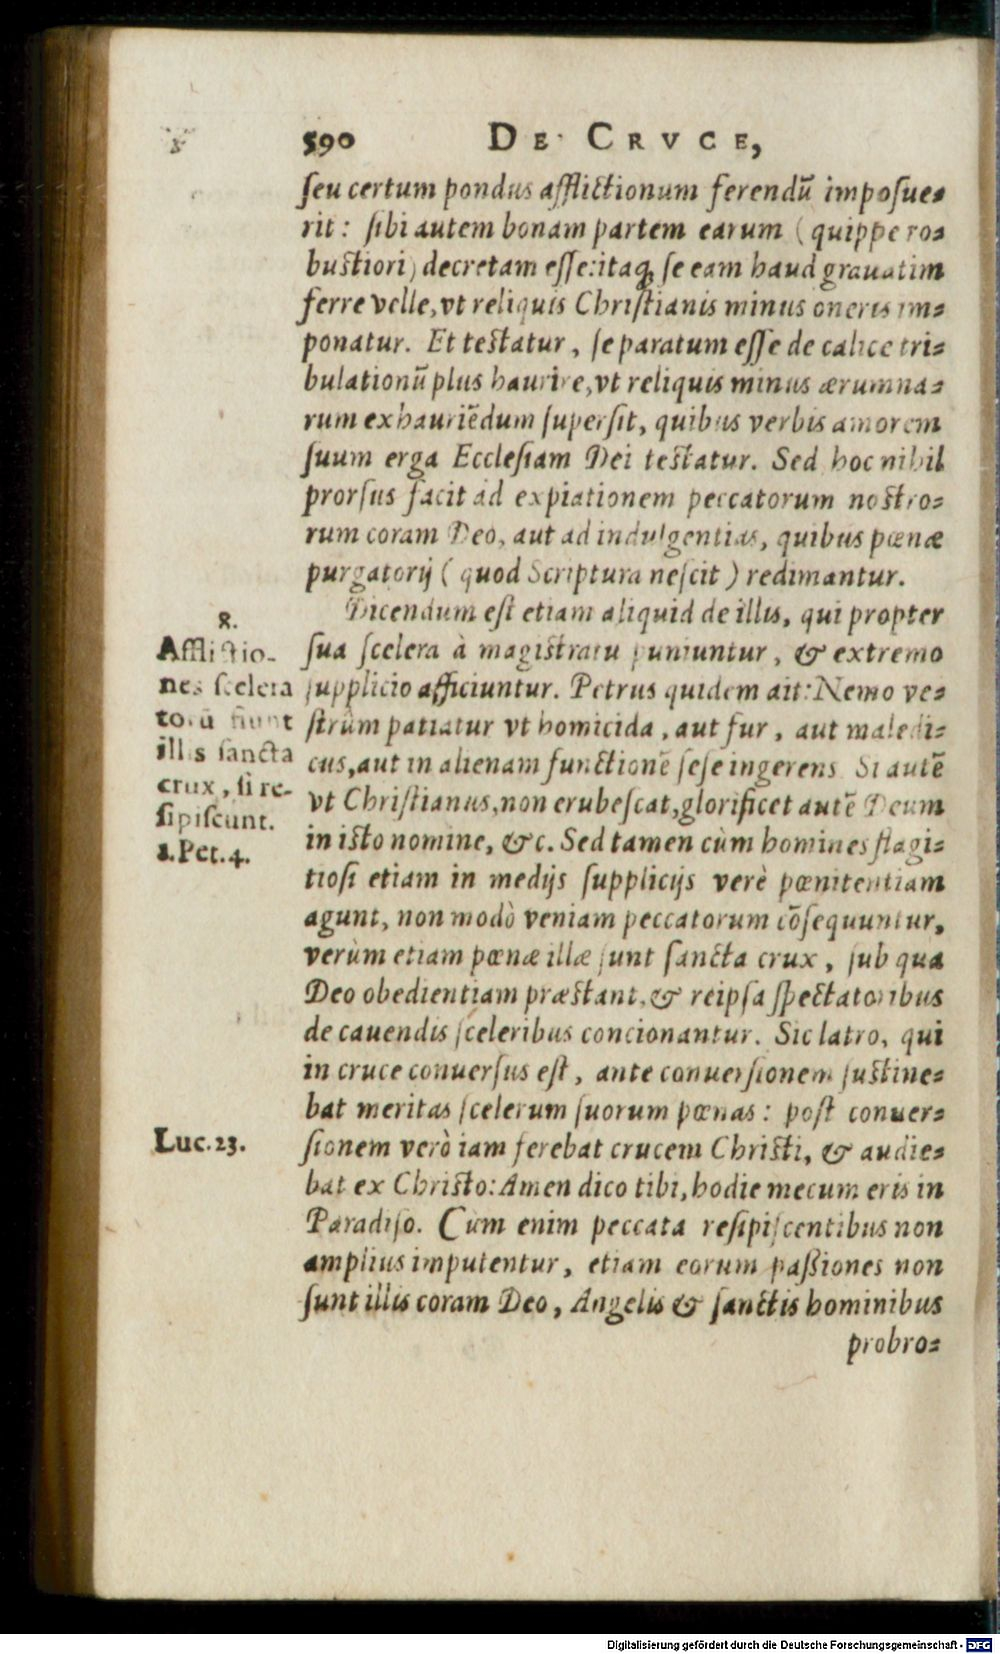 590 DE CRVCE,
ſeu certum pondus afflictionum ferendū impoſue=
rit: ſibi autem bonam partem earum (quippe ro=
buſtiori) decretam eſſe: itaq; ſe eam haud grauatim
ferre velle, vt reliquis Chriſtianis minus oneris im=
ponatur. Et teſtatur, ſe paratum eſſe de calice tri=
bulationū plus haurire, vt reliquis minus ærumna=
rum exhauriēdum ſuperſit, quibus verbis amorem
ſuum erga Eccleſiam Dei teſtatur. Sed hoc nihil
prorſus facit ad expiationem peccatorum noſtro=
rum coram Deo, aut ad indulgentias, quibus pœnæ
purgatorij (quod Scriptura neſcit) redimantur.
Dicendum eſt etiam aliquid de illis, qui propter
ſua ſcelera à magiſtratu puniuntur, & extremo
ſupplicio afficiuntur. Petrus quidem ait: Nemo ve=
ſtrûm patiatur vt homicida, aut fur, aut maledi=
cus, aut in alienam functionē ſeſe ingerens. Si autē
vt Chriſtianus, non erubeſcat, glorificet autē Deum
in iſto nomine, &c. Sed tamen cùm homines flagi=
tioſi etiam in medijs ſupplicijs verè pœnitentiam
agunt, non modò veniam peccatorum cōſequuntur,
verùm etiam pœnæ illæ ſunt ſancta crux, ſub qua
Deo obedientiam præſtant, & reipſa ſpectatoribus
de cauendis ſceleribus concionantur. Sic latro, qui
in cruce conuerſus eſt, ante conuerſionem ſuſtine=
bat meritas ſcelerum ſuorum pœnas: poſt conuer=
ſionem verò iam ferebat crucem Chriſti, & audie=
bat ex Chriſto: Amen dico tibi, hodie mecum eris in
Paradiſo. Cùm enim peccata reſipiſcentibus non
amplius imputentur, etiam eorum paßiones non
ſunt illis coram Deo, Angelis & ſanctis hominibus
probro=
8.
Afflictio-
nes ſcelera
torū fiunt
illis ſancta
crux, ſi re-
ſipiſcunt.
1. Pet. 4.
Luc. 23.
Digitalisierung gefördert durch die Deutsche Forschungsgemeinschaft - DFG